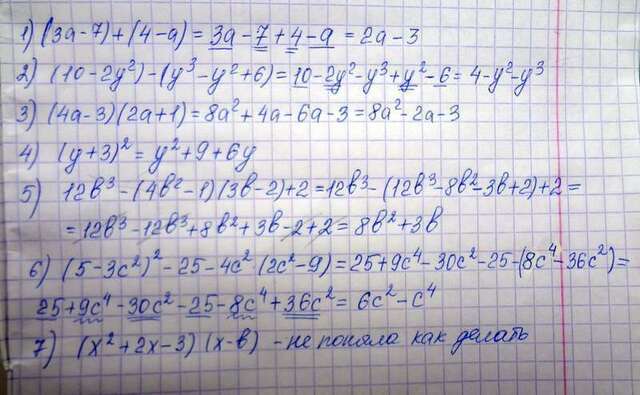 1) (3a-7)+(4-a) = 3a-7+4-a = 2a-3
2) (10-2y²)-(y³-y²+6)=10-2y²-y³+y²-6=4-y²-y³
3) (4a-3)(2a+1)=8a²+4a-6a-3=8a²-2a-3
4) (y+3)²=y²+9+6y
5) 12в³-(4в²-1)(3в-2)+2=12в³-(12в³-8в²-3в+2)+2=
=12в³-12в³+8в²+3в-2+2=8в²+3в
6) (5-3c²)²-25-4c²(2c²-9)=25+9c⁴-30c²-25-(8c⁴-36c²)=
25+9c⁴-30c²-25-8c⁴+36c²=6c²-c⁴
7) (x²+2x-3)(x-в) - не поняла как делать